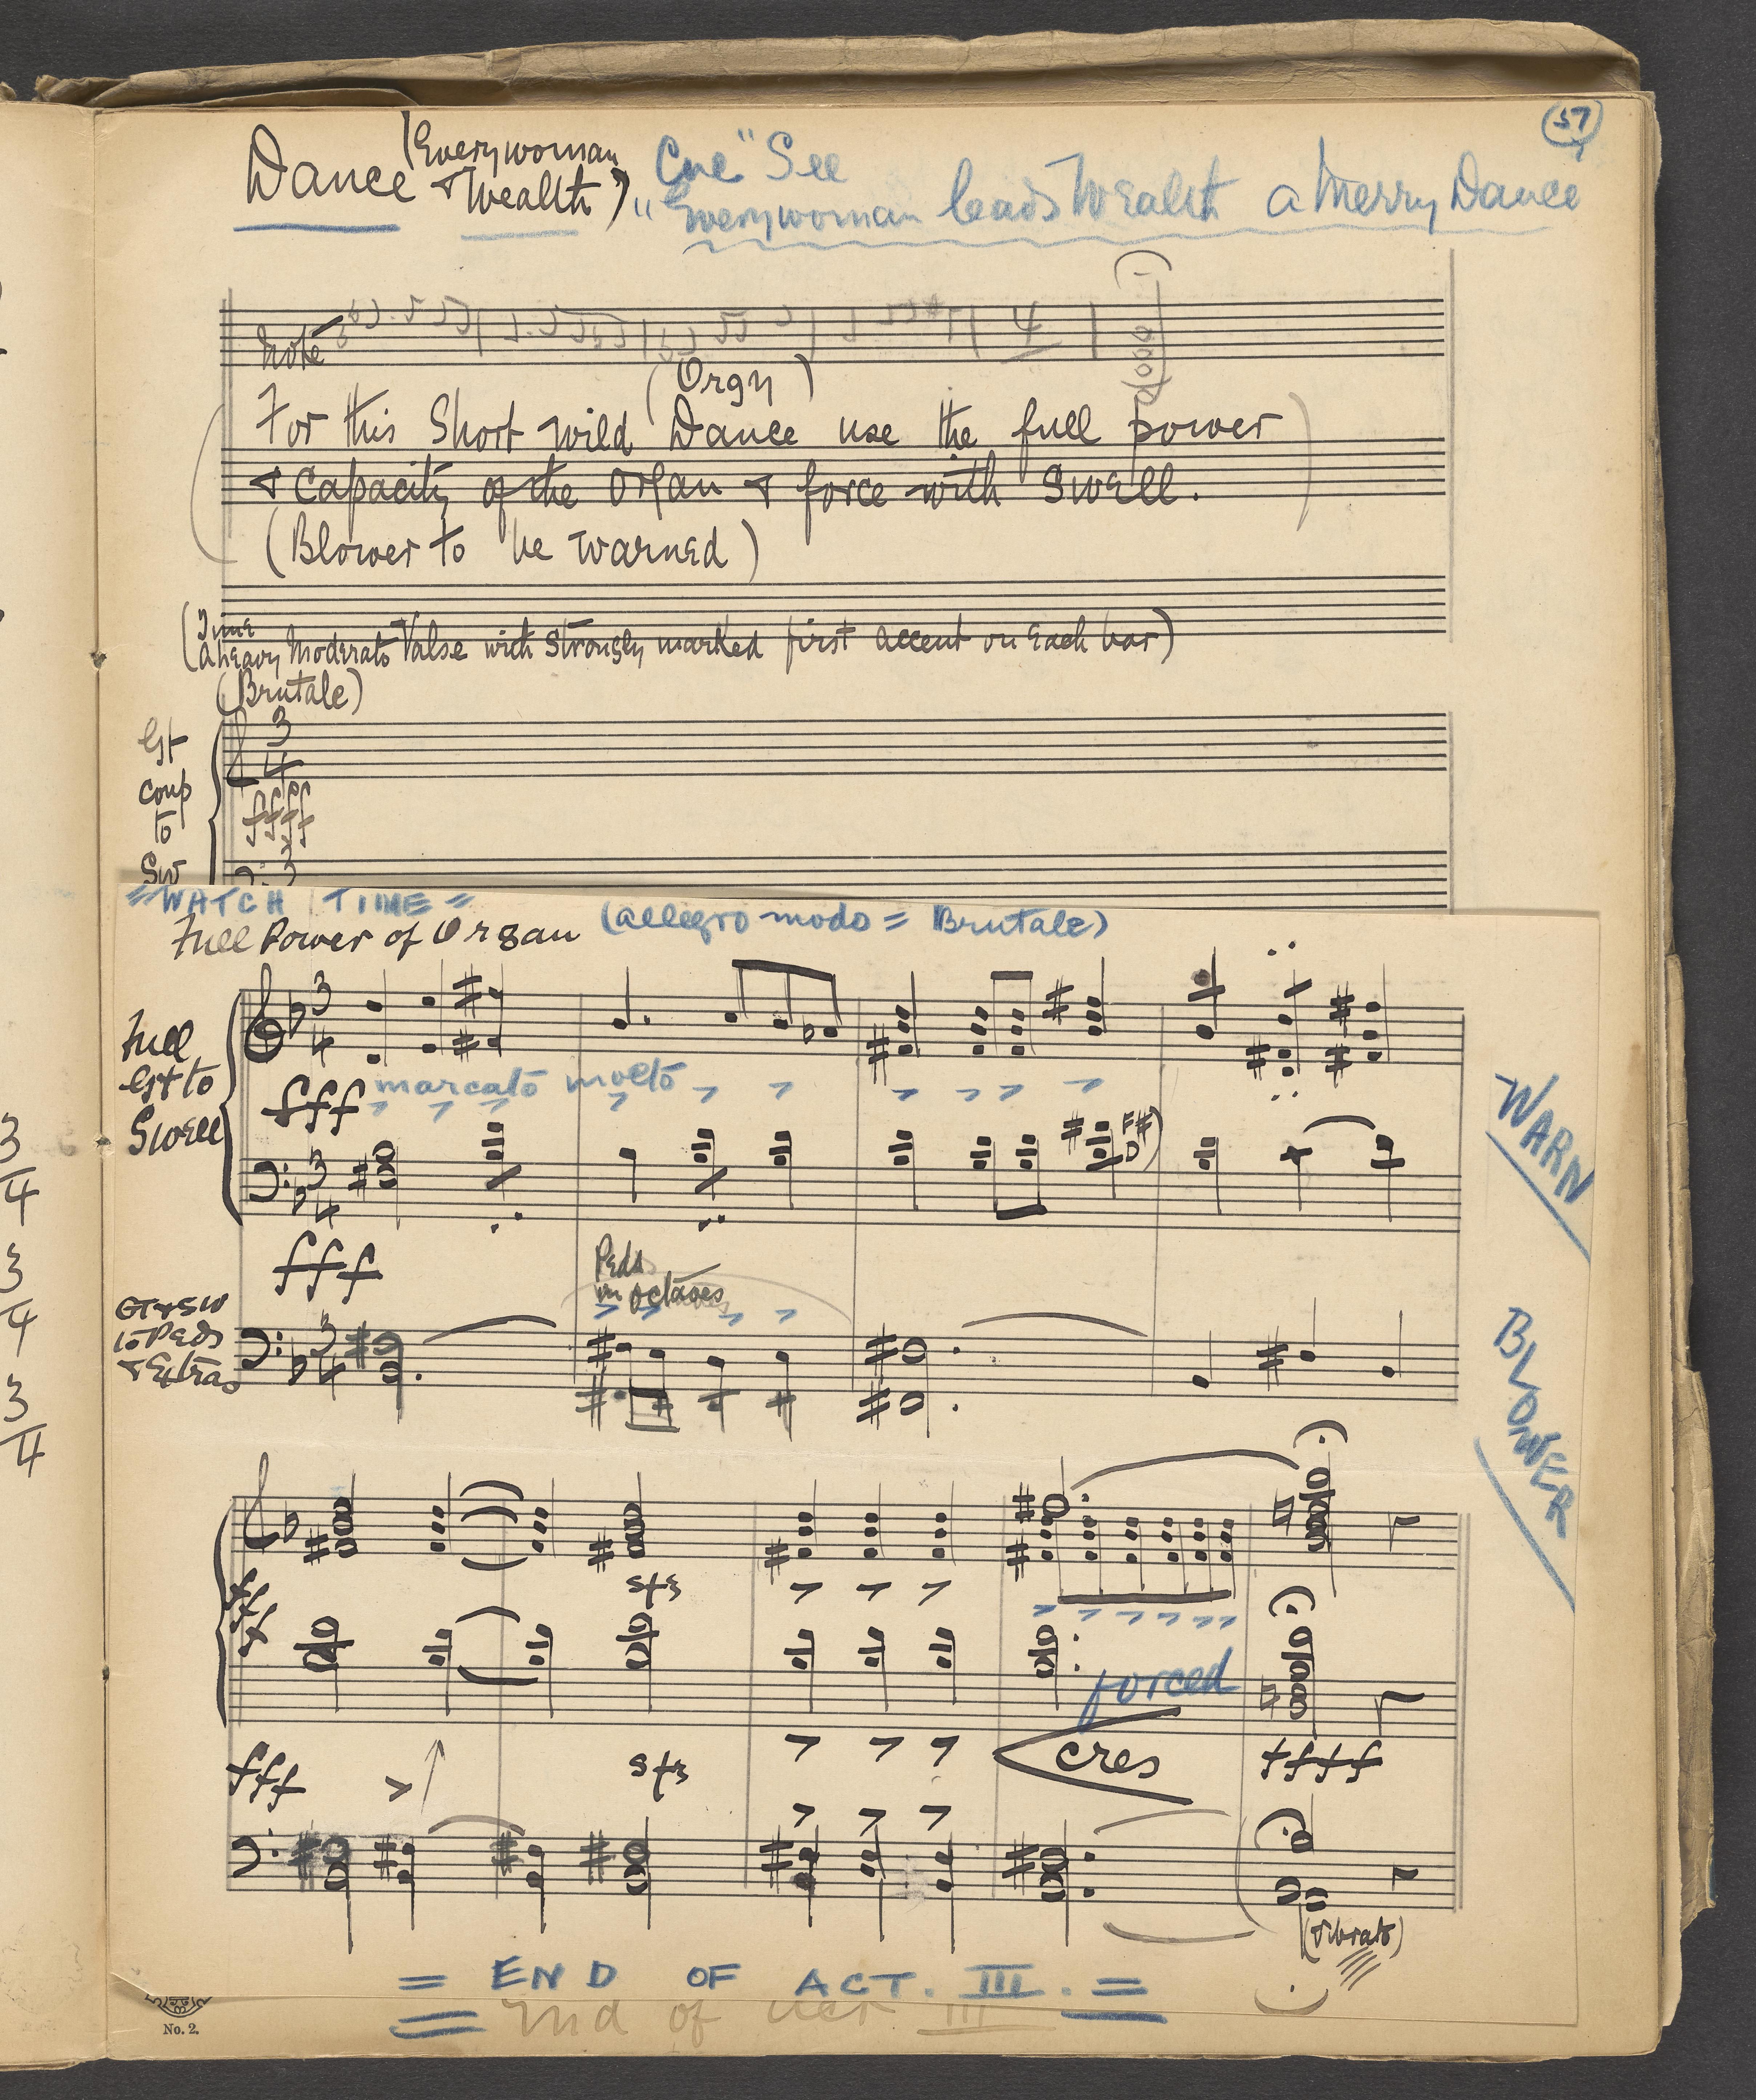 57
Dance (Everywoman & Wealth) Cue "See
"Everywoman leads Wealth a Merry Dance
Note
(Orgy)
For this Short wild Dance use the full power
& Capacity of the Organ & force with Swell.
(Blower to be warned)
(Time
a heavy Moderato Valse with Strongly marked first accent on Each bar)
(Brutale)
Gt
coup
to
Sw
3
4
ffff
3
= WATCH TIME =
Full Power of Organ (allegro modo = Brutale)
Full
Gt to
Swell
3
4
fff marcato molto
F#
D)
3
4
WARN
BLOWER
fff
Peds
in octaves
GT & SW
to Peds
& Extras
3
4
3
4
3
4
3
4
fff
sfz
forced
fff
>
sfz
cres
ffff
(vibrato)
= END OF ACT. III. =
End of Act III
No. 2.